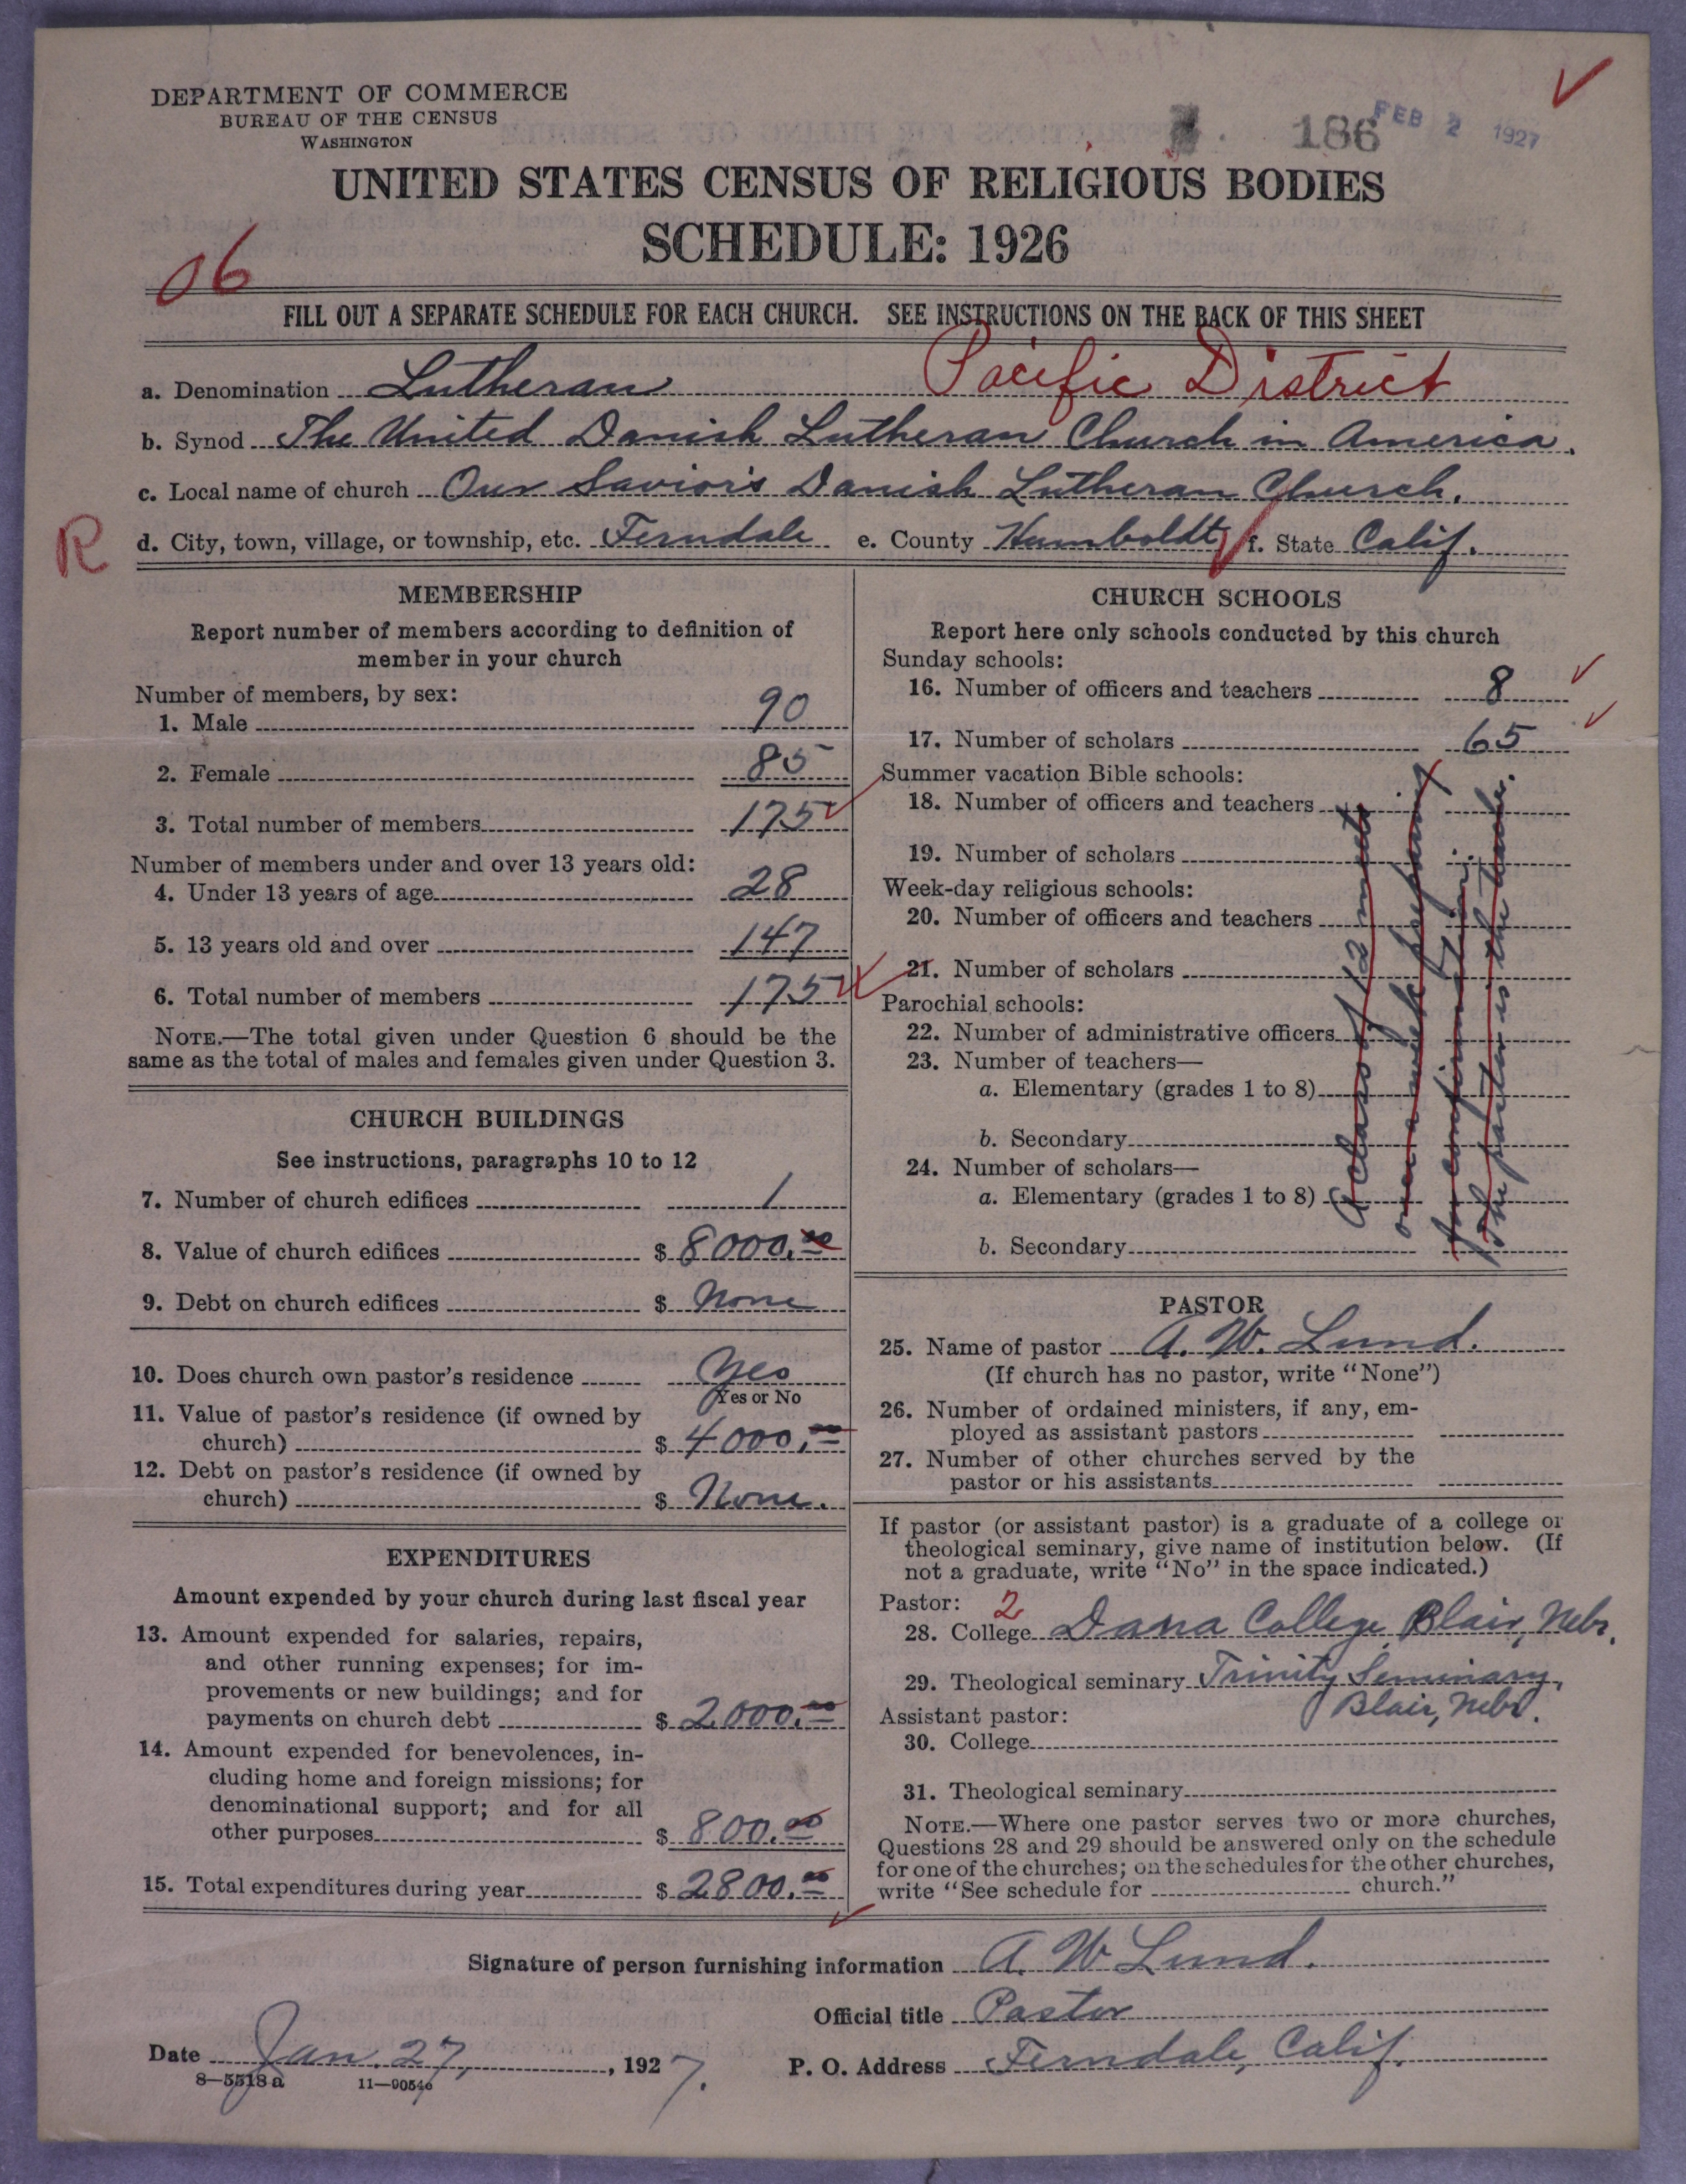 DEPARTMENT OF COMMERCE
BUREAU OF THE CENSUS
WASHINGTON
186
FEB 2 1927
UNITED STATES CENSUS OF RELIGIOUS BODIES
SCHEDULE: 1926
06
FILL OUT A SEPARATE SCHEDULE FOR EACH CHURCH. SEE INSTRUCTIONS ON THE BACK OF THIS SHEET
a. Denomination Lutheran Pacific District
b. Synod The United Danish Lutheran Church in America.
c. Local name of church Our Savior's Danish Lutheran Church.
R d. City, town, village, or township, etc. Ferndale e. County Humboldt f. State Calif.
MEMBERSHIP
Report number of members according to definition of
member in your church
Number of members, by sex:
1. Male 90
2. Female 85
3. Total number of members 175
Number of members under and over 13 years old:
4. Under 13 years of age 28
5. 13 years old and over 147
6. Total number of members 175
NOTE.—The total given under Question 6 should be the
same as the total of males and females given under Question 3.
CHURCH BUILDINGS
See instructions, paragraphs 10 to 12
7. Number of church edifices 1
8. Value of church edifices $ 8000.00
9. Debt on church edifices $ None
10. Does church own pastor's residence Yes
Yes or No
11. Value of pastor's residence (if owned by
church) $ 4000.00
12. Debt on pastor's residence (if owned by
church) $ None.
EXPENDITURES
Amount expended by your church during last fiscal year
13. Amount expended for salaries, repairs,
and other running expenses; for im-
provements or new buildings; and for
payments on church debt $ 2000.00
14. Amount expended for benevolences, in-
cluding home and foreign missions; for
denominational support; and for all
other purposes $ 800.00
15. Total expenditures during year $ 2800.00
CHURCH SCHOOLS
Report here only schools conducted by this church
Sunday schools:
16. Number of officers and teachers 8
17. Number of scholars 65
Summer vacation Bible schools:
18. Number of officers and teachers
19. Number of scholars
Week-day religious schools:
20. Number of officers and teachers
21. Number of scholars
Parochial schools:
22. Number of administrative officers
23. Number of teachers—
a. Elementary (grades 1 to 8)
b. Secondary
24. Number of scholars—
a. Elementary (grades 1 to 8)
b. Secondary
A class of 12 meets
once a week preparing
for confirmation.
The pastor is the teacher.
PASTOR
25. Name of pastor A. W. Lund.
(If church has no pastor, write "None")
26. Number of ordained ministers, if any, em-
ployed as assistant pastors
27. Number of other churches served by the
pastor or his assistants
If pastor (or assistant pastor) is a graduate of a college or
theological seminary, give name of institution below. (If
not a graduate, write "No" in the space indicated.)
Pastor: 2
28. College Dana College, Blair, Nebr.
29. Theological seminary Trinity Seminary,
Blair, Nebr.
Assistant pastor:
30. College
31. Theological seminary
NOTE.—Where one pastor serves two or more churches,
Questions 28 and 29 should be answered only on the schedule
for one of the churches; on the schedules for the other churches,
write "See schedule for church."
Signature of person furnishing information A. W Lund.
Official title Pastor
Date Jan. 27, 1927. P. O. Address Ferndale, Calif.
8—5518a 11—9054c